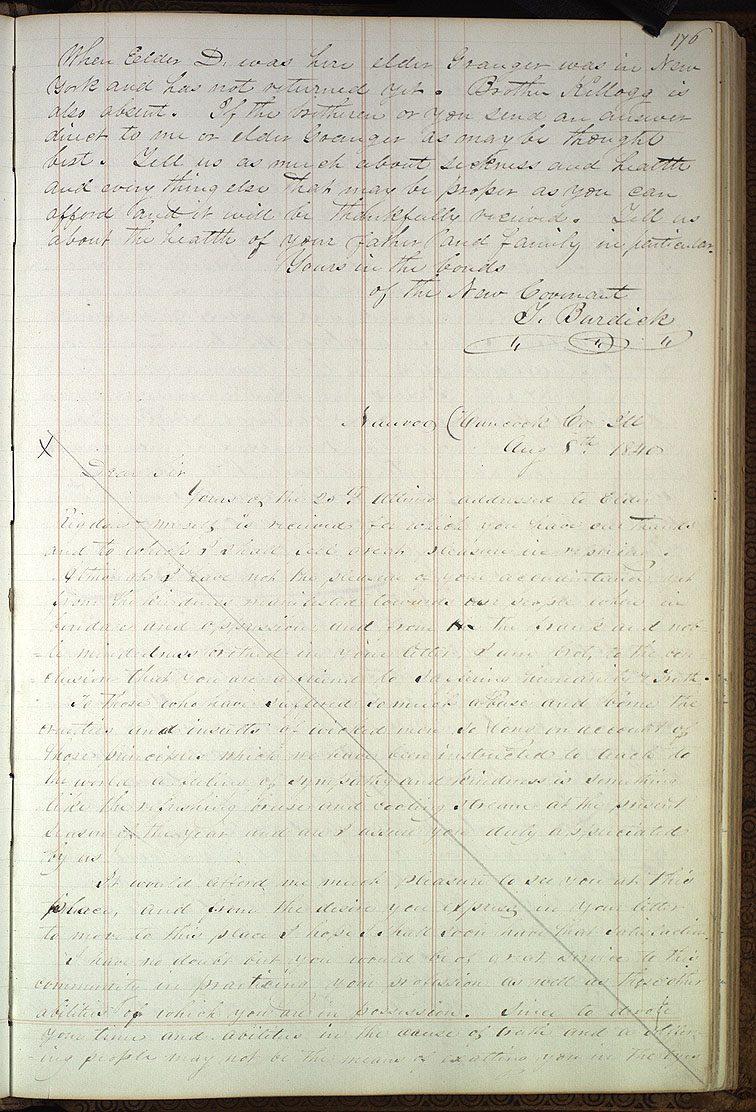 176
When Eelder D. was here elder Granger was in New
York and has not returned yet. Brother Kellogg is
also absent. If the bretheren or you send an answer
direct to me or elder Granger as may be thought
best. Tell us as much about sickness and health
and every thing else that may be proper as you can
afford and it will be thankfully received. Tell us
about the health of your father and family in particular.
Yours in the bonds
of the New Covenant
T. Burdick
Nauvoo (Hancock Co Ill
Aug 8th 1840
X
Dear Sir
Yours of the 20th Ultimo addressed to Elder
Rigdon & myself is received for which you have our thanks
and to which I shall feel great pleasure in replying.
Altho I have not the pleasure of your acquaintance yet
from the kindness manifested towards our people when in
bondage and oppression and from the frank and nob
le mindedness breathed in your letter I am brot, to the con
clusion that you are a friend to suffering humanity & truth.
To those who have suffered so much abuse and borne the
cruelties and insults of wicked men so long on account of
those principles which we have been instructed to teach to
the world a feeling of sympathy and kindness is something
like the refreshing breese and cooling stream at the present
season of the year and are I assure you duly appreciated
by us
It would afford me much pleasure to see you at this
place, and from the desire you express in your letter
to move to this place I hope I shall soon have that satisfaction
I have no doubt but you would be of great service to this
community in practicing your profession as well as those other
abilities of which you are in possession. Since to devote
your time and abilities in the cause of truth and a suffer
ing people may not be the means of exalting you in the eyes